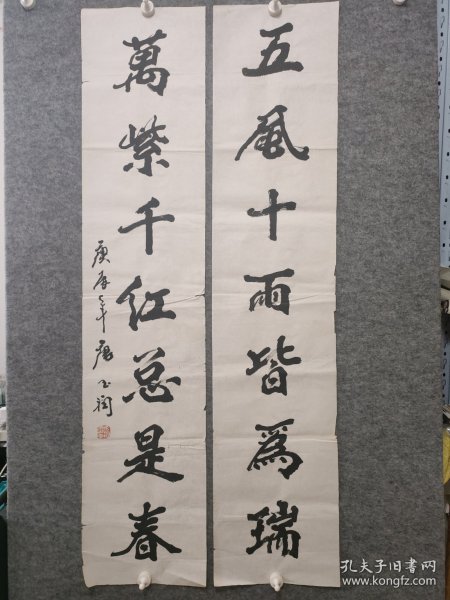 五風十雨皆為瑞
萬紫千红总是春
庚辰年
孔夫子旧书网
www.kongfz.com